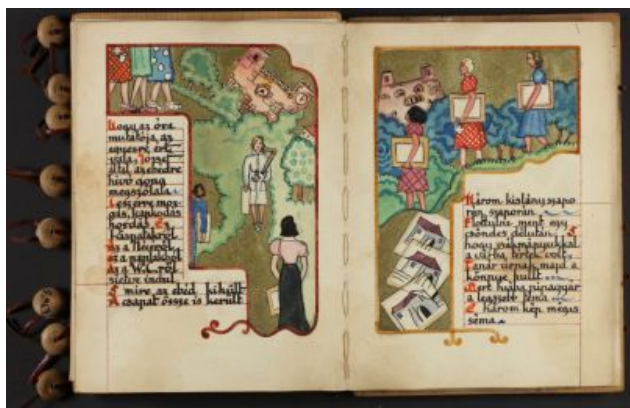 Hogy az óra
mutatója az
egyesre ért
vala, Józse
által az ebédre
hívó gong
megszólala.
Leszerre moz-
gás, kapkodás
hordás. Ez
az a
az a naplakból
az a W.C.-ről
sietve indul
S mire az ebéd kihűlt
A csapat össze is került.
Három kislány szapo
rán, szaporán
Flottyine ment egy
csöndes délután,
hogy zsákmányukkal
a várba térlek volt.
Tanár úrnak majd a
könnye hullt
Mert hiába
a legszebb téma
S három kép mégis
séma.